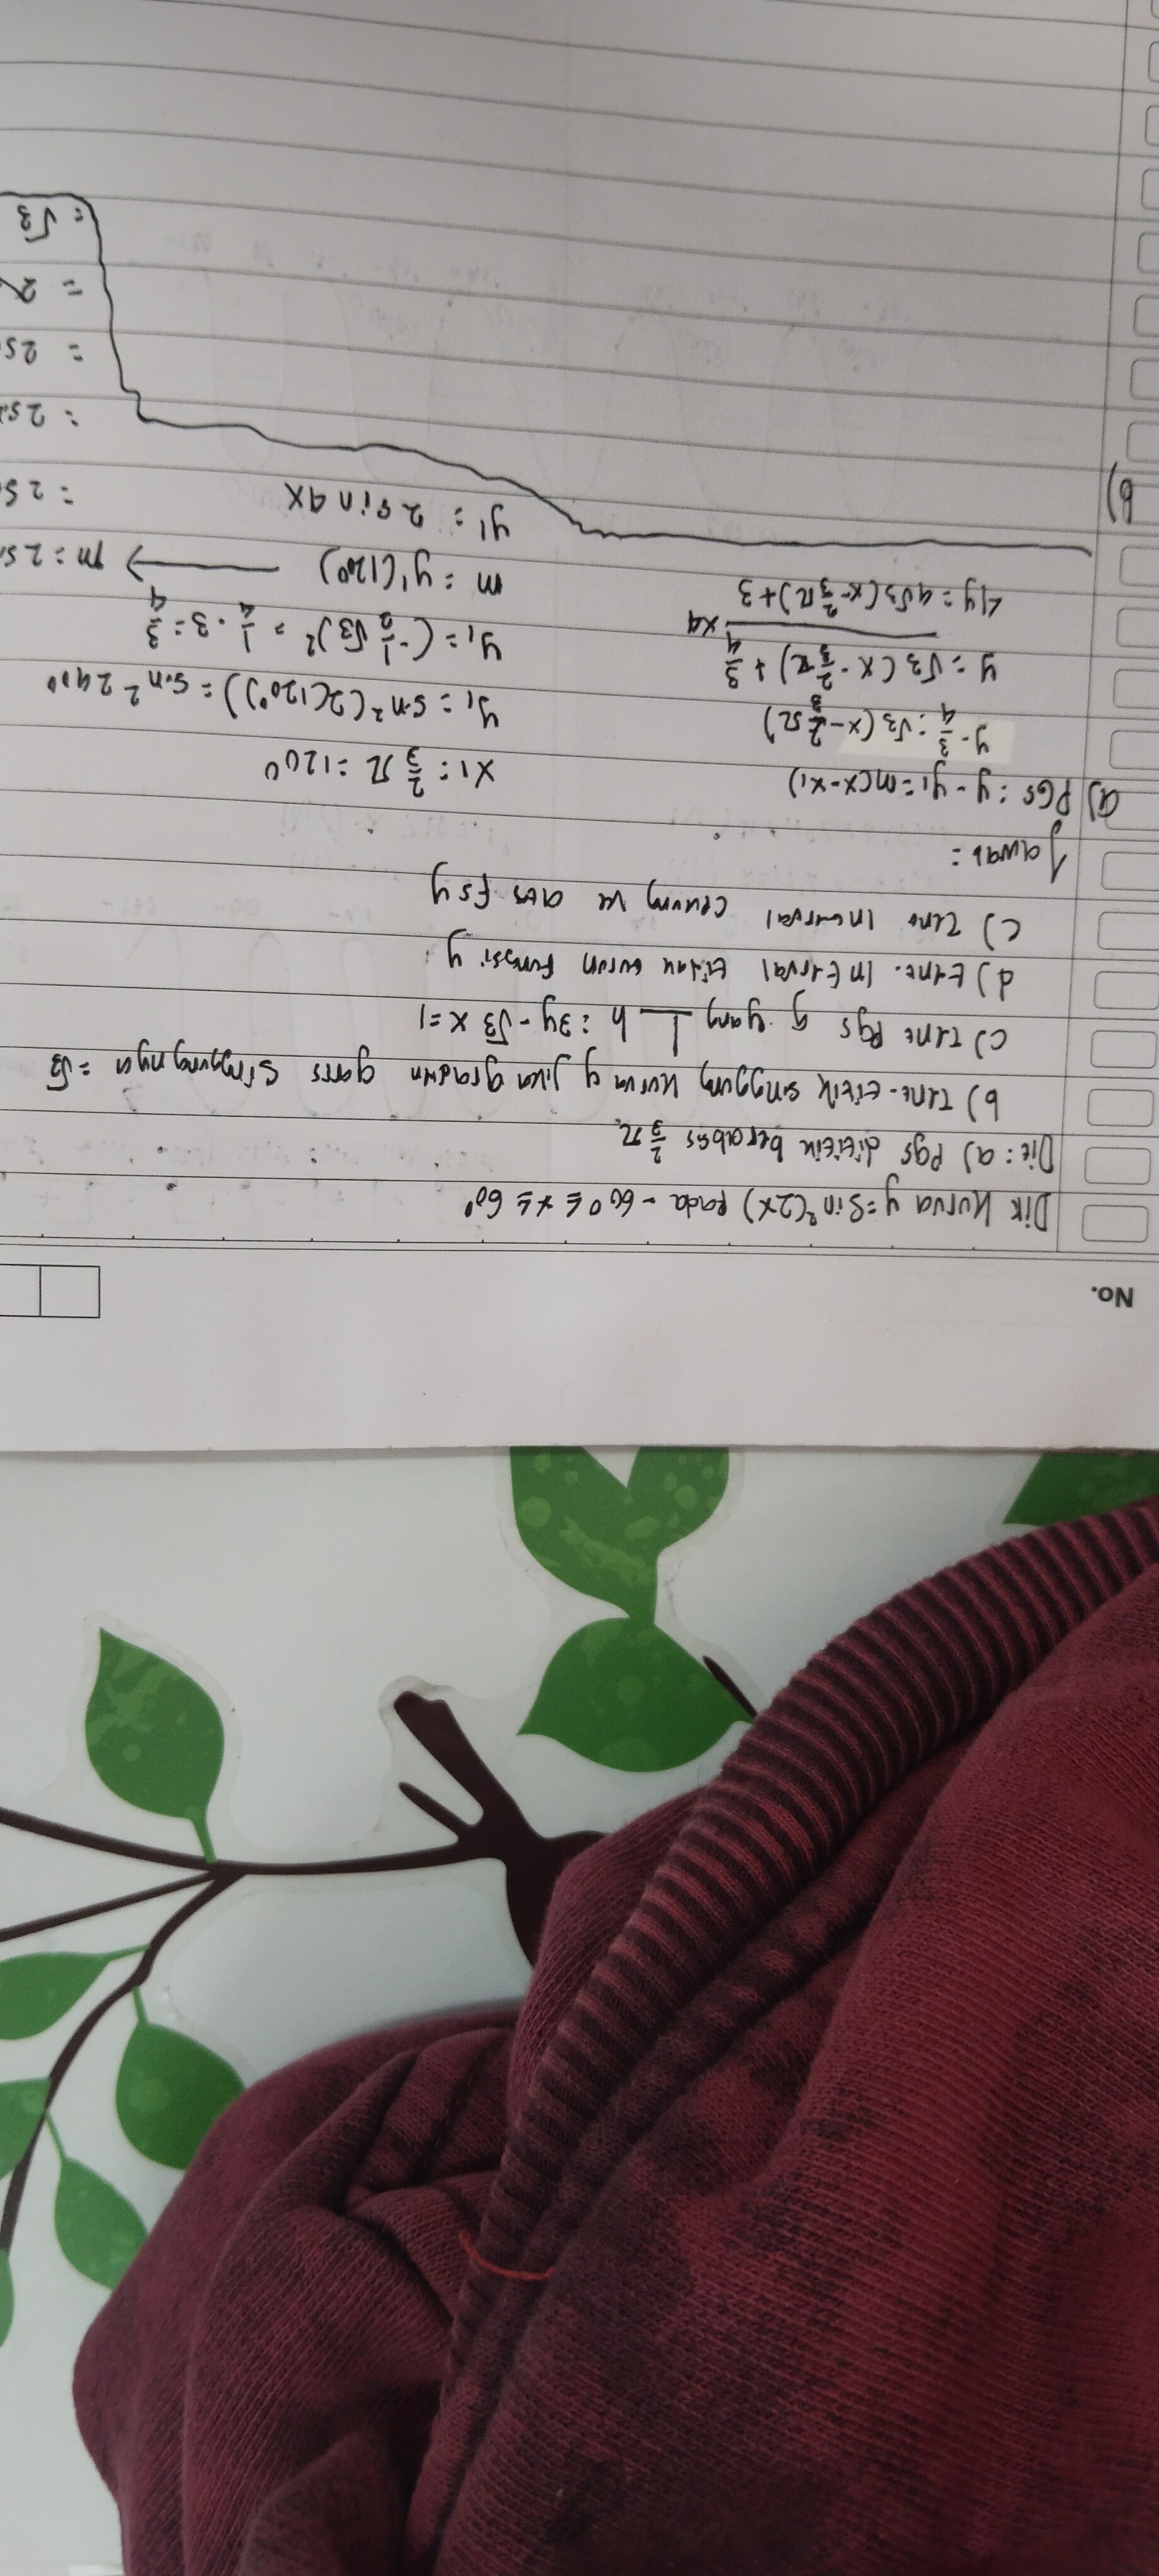 No.
Dik kurva y = Sin²(2x) pada -60° ≤ x ≤ 60°
Dit: a) pgs dititik berabsis 2/3 π
b) Tent. titik singgung kurva y jika gradien garis singgungnya = √3
c) Tent pgs g yang ⊥ h : 3y - √3 x = 1
d) tent. interval tidak turun fungsi y
e) Tent interval cekung ke atas fs y
Jawab =
a) PGS : y - y1 = m(x-x1) x1 = 2/3 π = 120°
y - 3/4 = √3 (x - 2/3 π) y1 = sin²(2(120°)) = sin² 240°
y = √3 (x - 2/3 π) + 3/4 y1 = (-1/2 √3)² = 1/4 · 3 = 3/4
x4
4y = 4√3 (x - 2/3 π) + 3 m = y'(120°) → m = 2s
y' = 2 sin 4x = 2s
b)
= 2s
= 2s
= 2
= √3